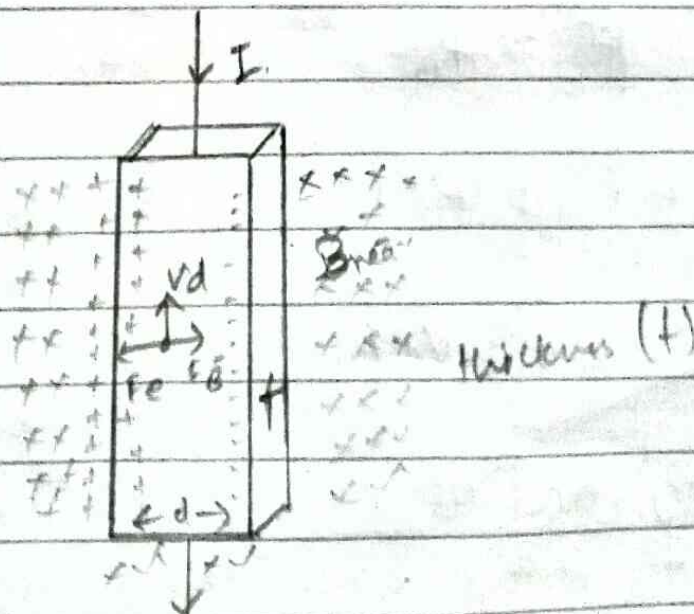 I.
Vd
Fe FB
thickness (t)
t
← d →